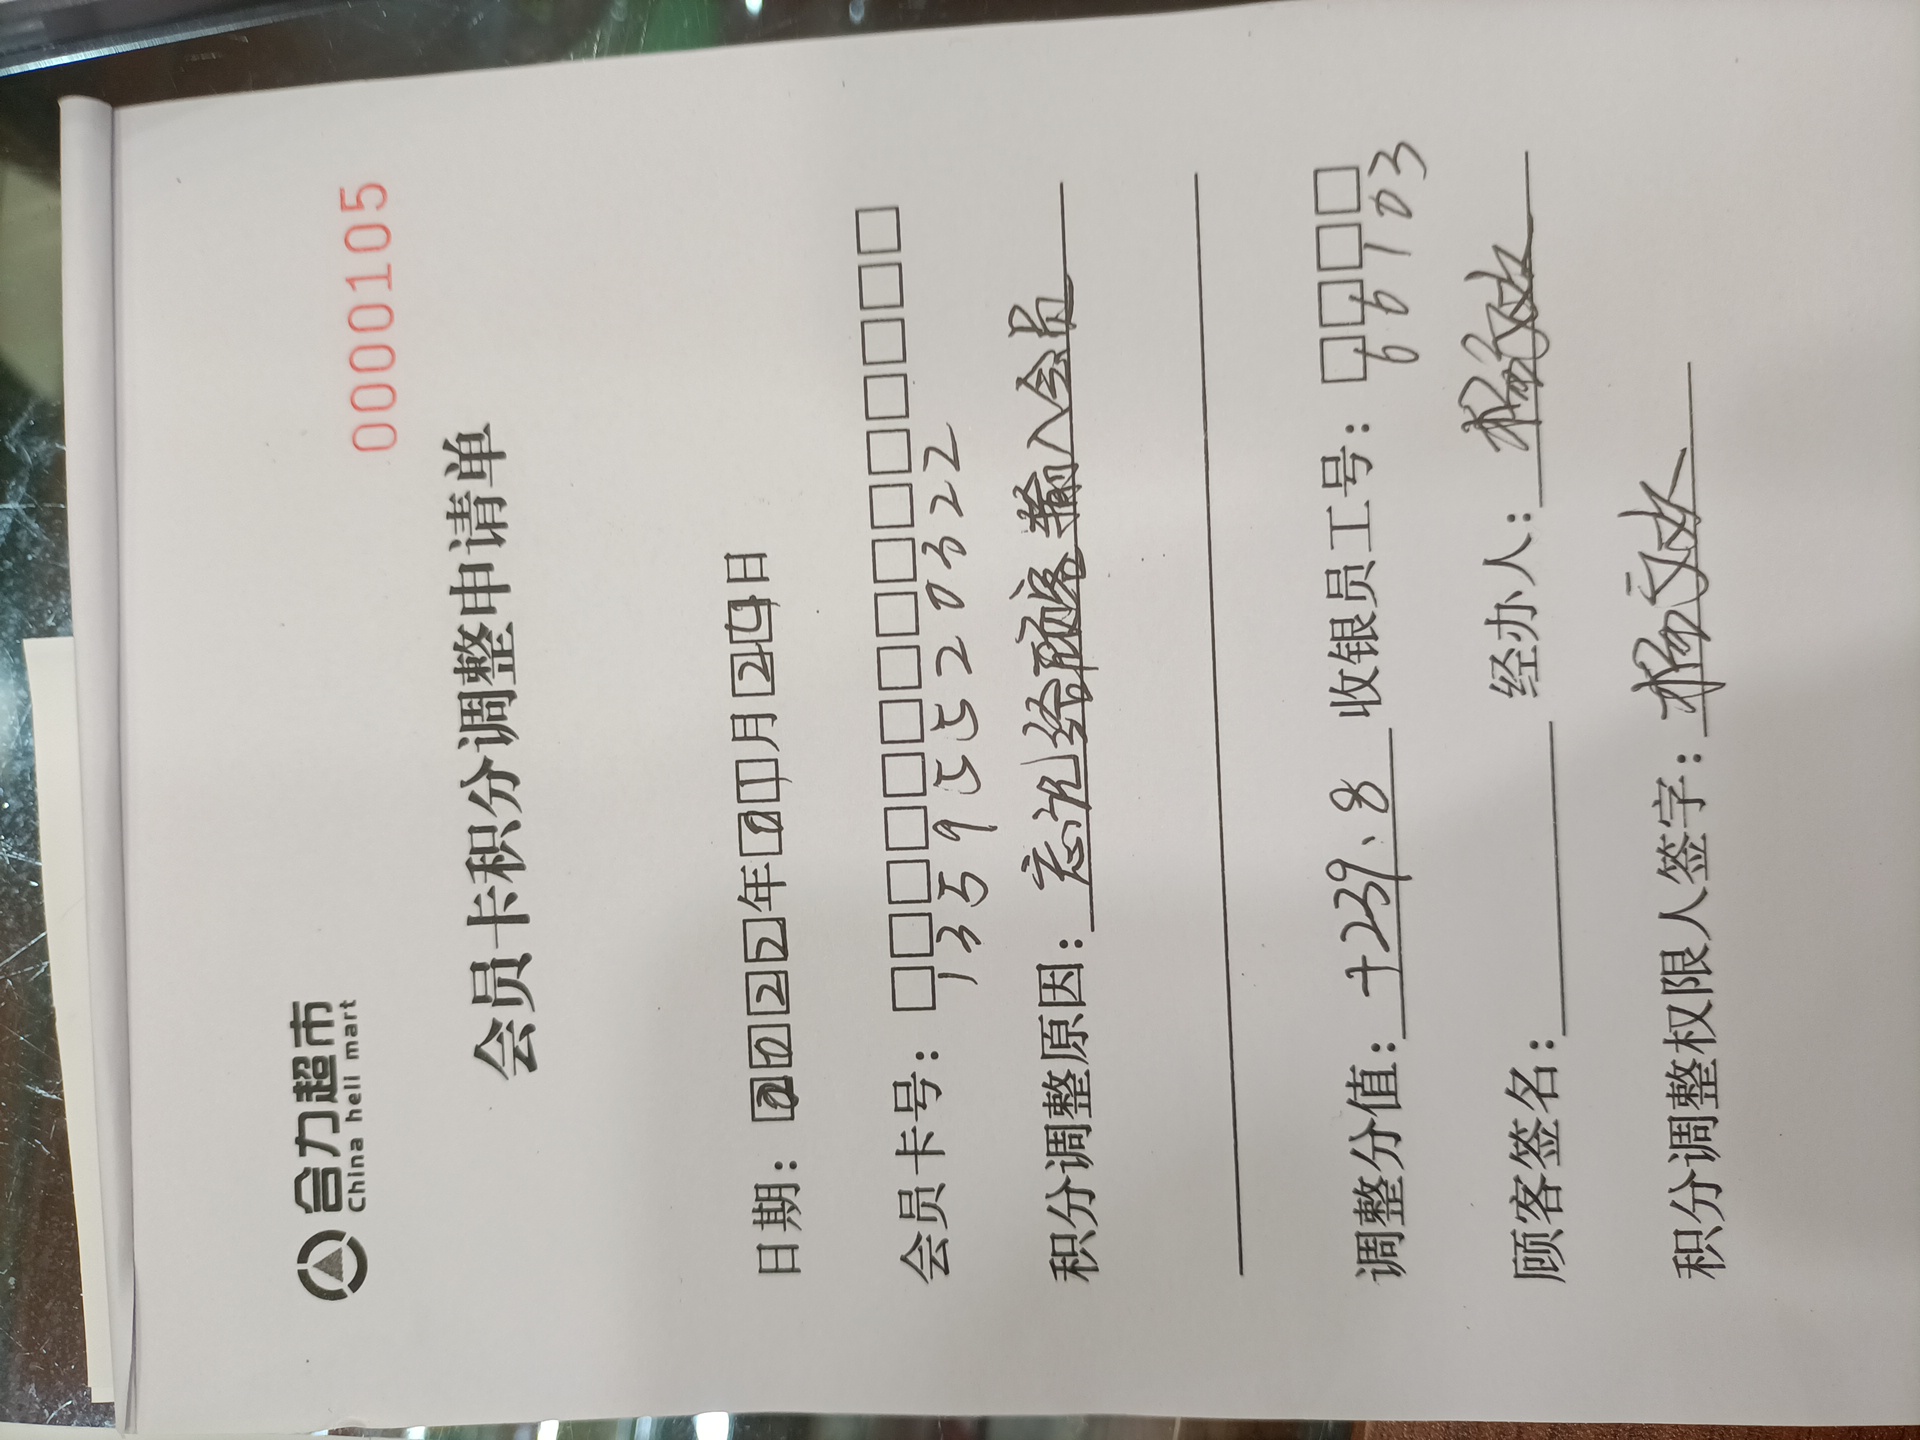 合力超市
China hell mart
0000105
会员卡积分调整申请单
日期：2022年01月24日
会员卡号：
13595520322
积分调整原因：忘记给顾客输入会员
调整分值：+239.8 收银员工号：
66103
顾客签名： 经办人：杨
积分调整权限人签字：杨